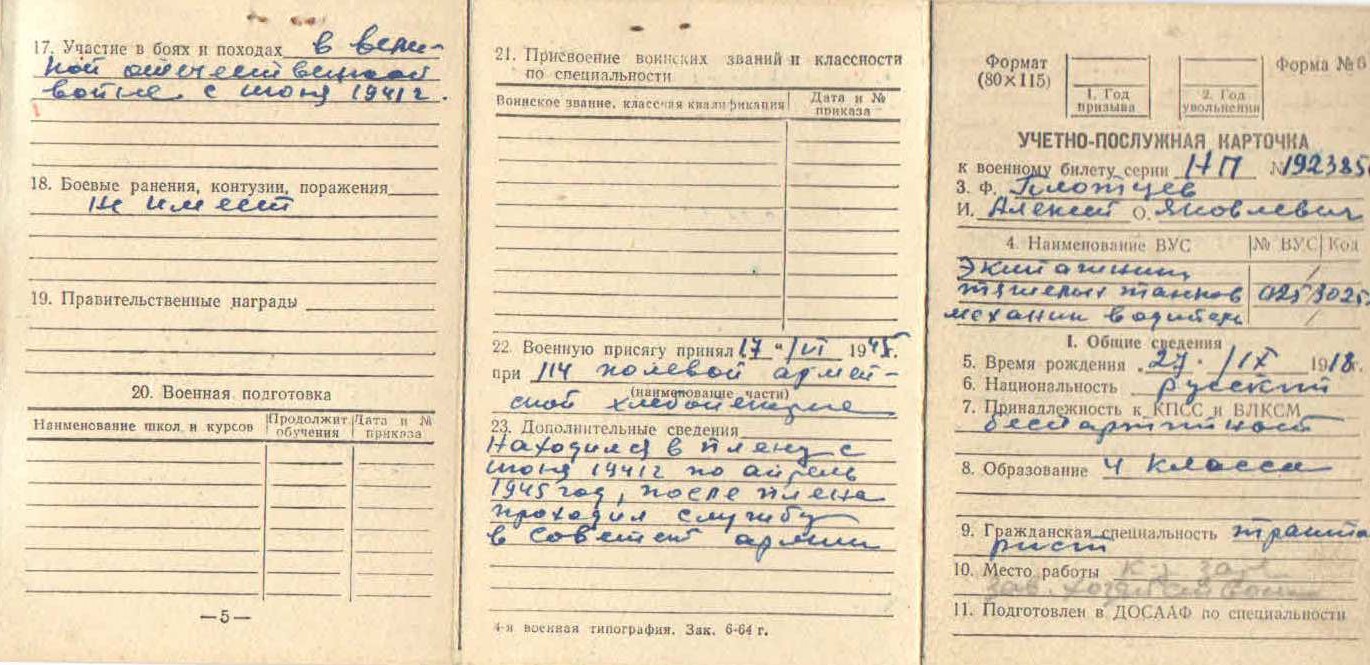 17. Участие в боях и походах в вели-
кой отечественной
войне с июня 1941 г.
18. Боевые ранения, контузии, поражения
не имеет
19. Правительственные награды
20. Военная подготовка
Наименование школ и курсов
Продолжит. обучения
Дата и № приказа
—5—
21. Присвоение воинских званий и классности
по специальности
Воинское звание, классная квалификация
Дата и № приказа
22. Военную присягу принял 17 " VI 1945 г.
при 114 полевой армей-
(наименование части)
ской хлебопекарне
23. Дополнительные сведения
Находился в плену с
июня 1941 г по апрель
1945 год, после плена
проходил службу
в Советской армии
4-я военная типография. Зак. 6-64 г.
Формат
(80×115)
1. Год призыва
2. Год увольнения
Форма № 6
УЧЕТНО-ПОСЛУЖНАЯ КАРТОЧКА
к военному билету серии НП № 192385
3. Ф.
И. Алексей О. Яковлевич
4. Наименование ВУС № ВУС Код
Экипажи
тяжелых танков
механик водитель
I. Общие сведения
5. Время рождения 27 · IX 1918 г.
6. Национальность русский
7. Принадлежность к КПСС и ВЛКСМ
беспартийност
8. Образование 4 класса
9. Гражданская специальность тракто
рист
10. Место работы
зав.
11. Подготовлен в ДОСААФ по специальности